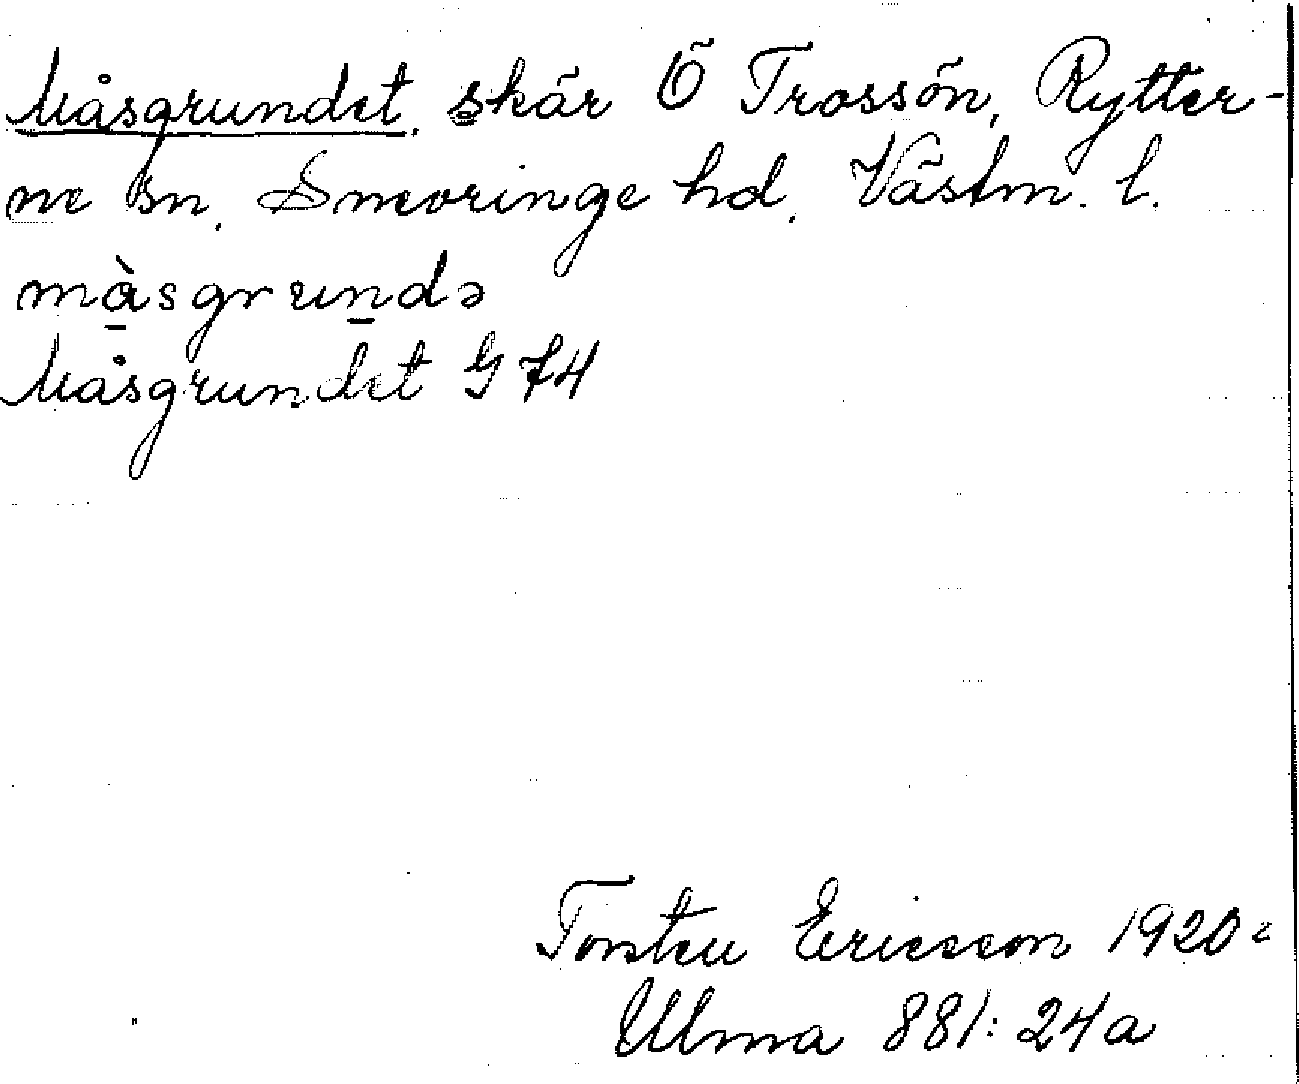 Måsgrundet, skär Ö Trossön, Rytter-
ne sn, Snevringe hd, Västm. l.
mà̱sgrun̲də
Måsgrundet G 74
Torsten Ericsson 1920 =
Ulma 881: 24a